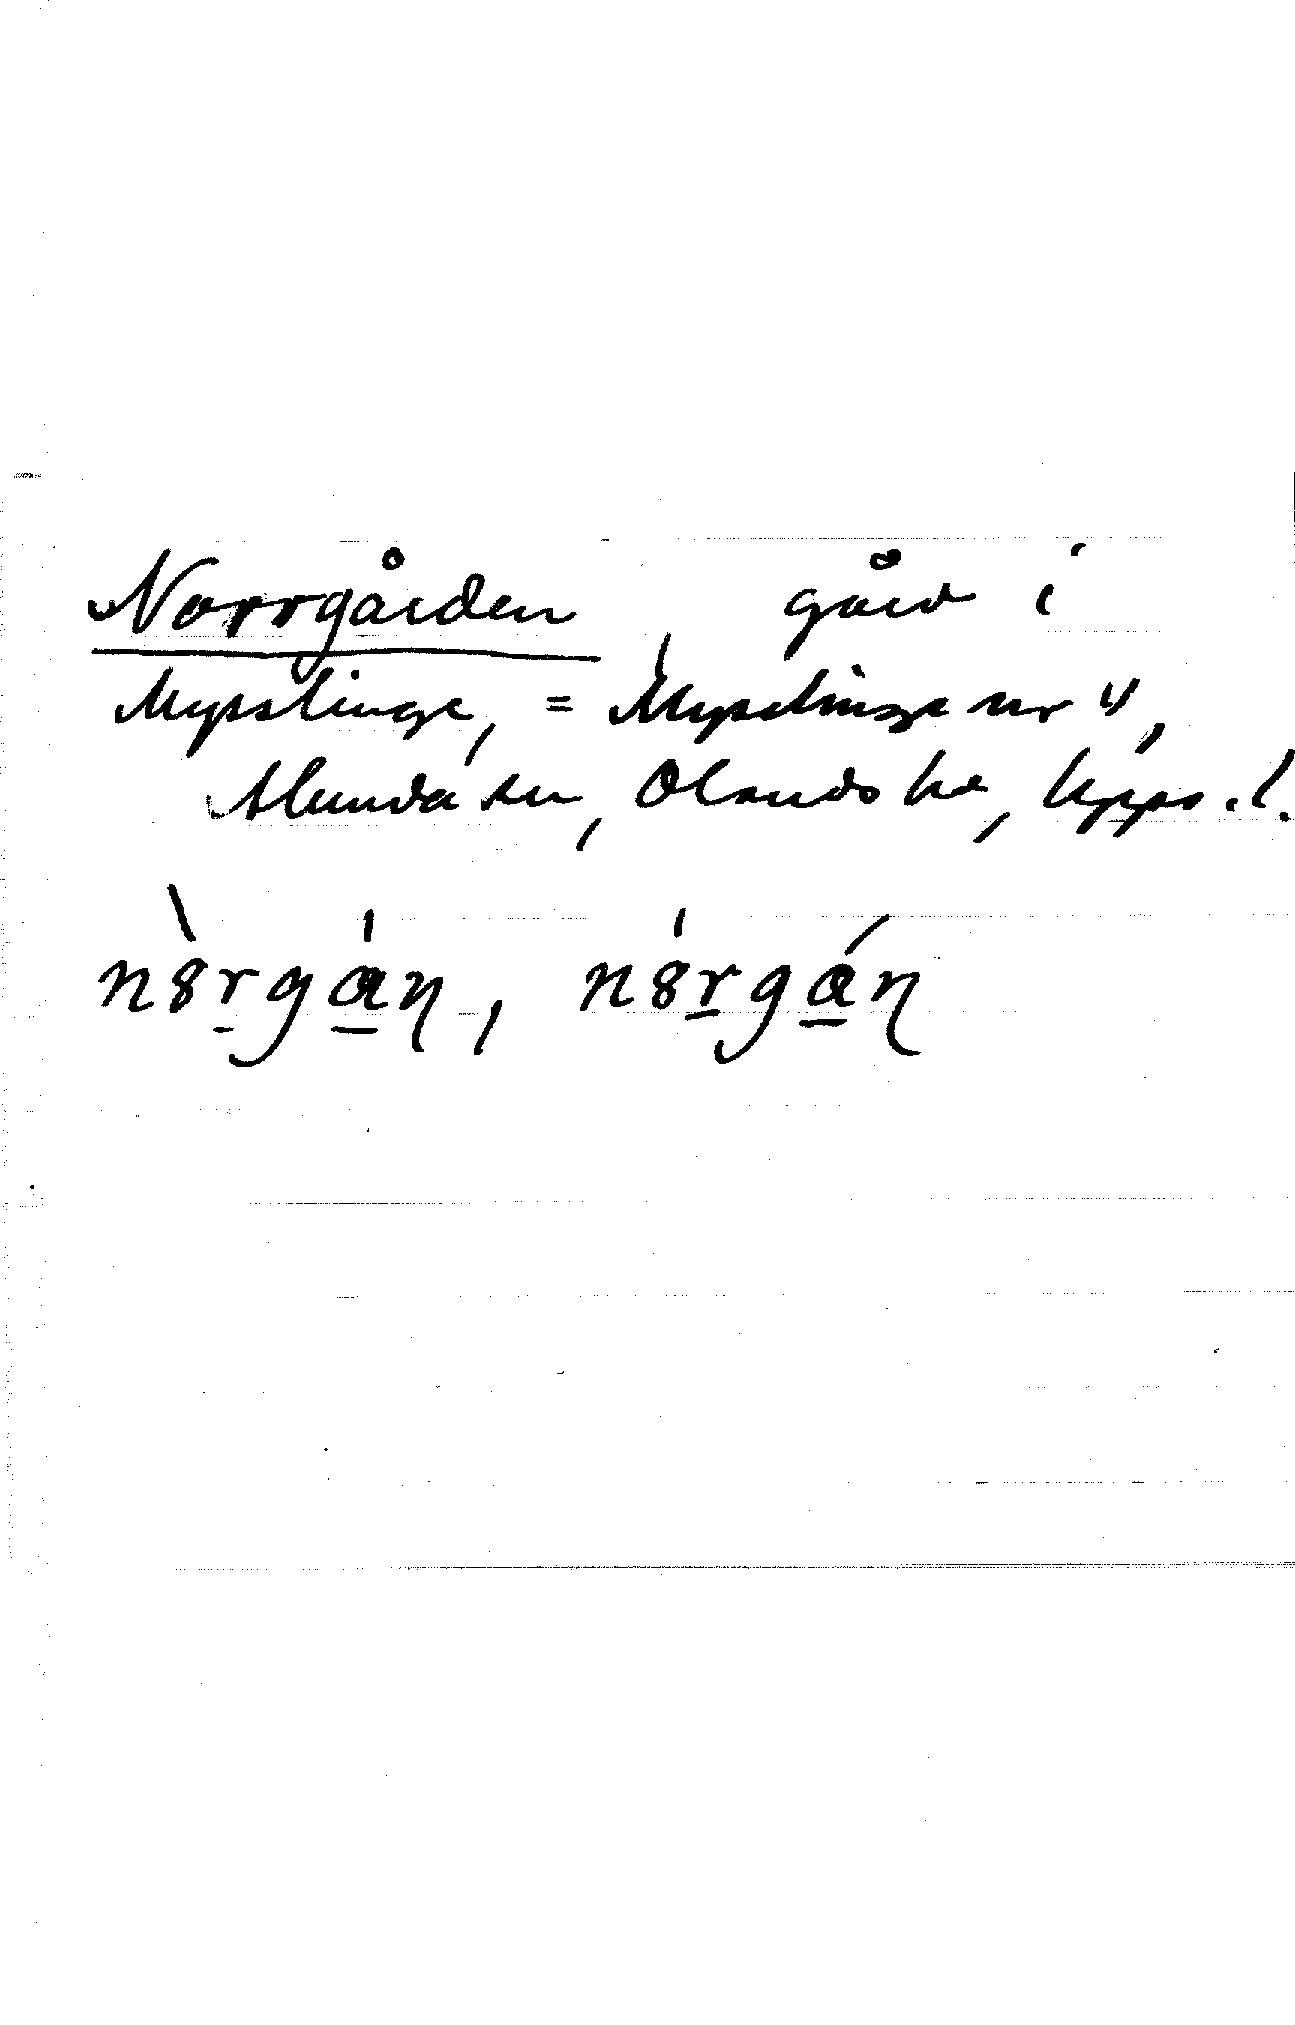 Norrgården, gård i
Mysslinge, = Mysslinge nr 4,
Alunda sn, Olands hd, Upps. l.
nȣ̀rgán, nȣ́rgán